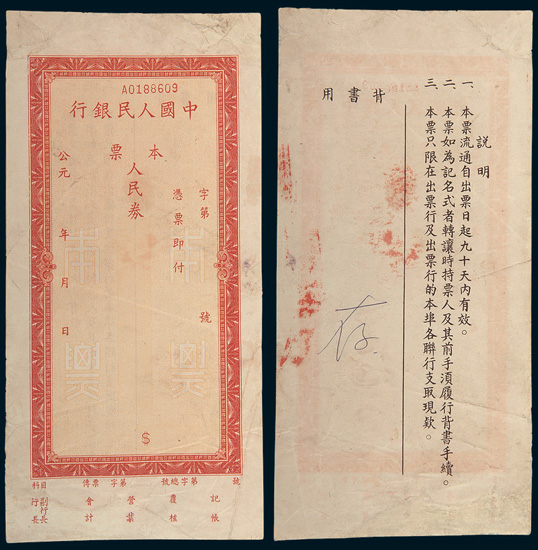 A0188609
行銀民人國中
票本
字第 號
憑票即付
人民券
公元 年 月 日
本票
$
號 字第 號總字 票傳
目科
記帳
覆核
營業
會計
副行長
行長
用書背
說明
一、本票流通自出票日起九十天內有效。
二、本票如為記名式者轉讓時持票人及其前手須履行背書手續。
三、本票只限在出票行及出票行的本埠各聯行支取現款。
存